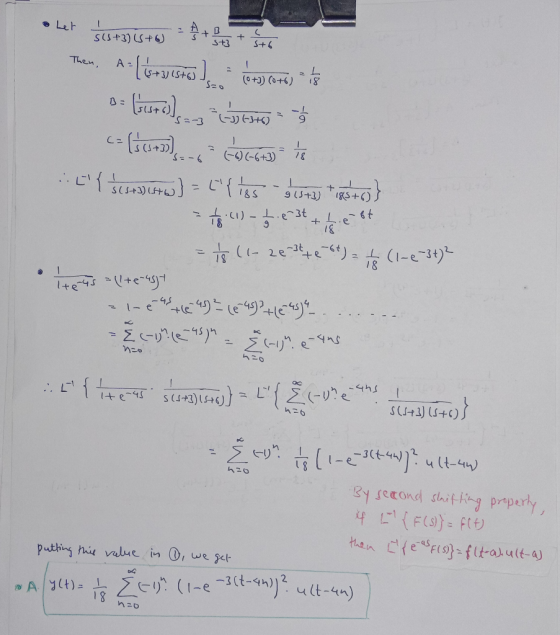 • Let 1/(s(s+3)(s+6)) = A/s + B/(s+3) + C/(s+6)
Then, A = [1/((s+3)(s+6))]_{s=0} = 1/((0+3)(0+6)) = 1/18
B = [1/(s(s+6))]_{s=-3} = 1/((-3)(-3+6)) = -1/9
C = [1/(s(s+3))]_{s=-6} = 1/((-6)(-6+3)) = 1/18
∴ L⁻¹{1/(s(s+3)(s+6))} = L⁻¹{1/(18s) - 1/(9(s+3)) + 1/(18(s+6))}
= 1/18·(1) - 1/9·e^{-3t} + 1/18·e^{-6t}
= 1/18 (1 - 2e^{-3t} + e^{-6t}) = 1/18 (1-e^{-3t})²
• 1/(1+e^{-4s}) = (1+e^{-4s})⁻¹
= 1 - e^{-4s} + (e^{-4s})² - (e^{-4s})³ + (e^{-4s})⁴ - .......
= Σ_{n=0}^{∞} (-1)ⁿ·(e^{-4s})ⁿ = Σ_{n=0}^{∞} (-1)ⁿ·e^{-4ns}
∴ L⁻¹{1/(1+e^{-4s}) · 1/(s(s+3)(s+6))} = L⁻¹{Σ_{n=0}^{∞} (-1)ⁿ·e^{-4ns} · 1/(s(s+3)(s+6))}
= Σ_{n=0}^{∞} (-1)ⁿ· 1/18 [1-e^{-3(t-4n)}]²·u(t-4n)
By second shifting property,
if L⁻¹{F(s)} = f(t)
then L⁻¹{e^{-as}F(s)} = f(t-a)·u(t-a)
putting this value in ①, we get
A y(t) = 1/18 Σ_{n=0}^{∞} (-1)ⁿ·(1-e^{-3(t-4n)})²·u(t-4n)